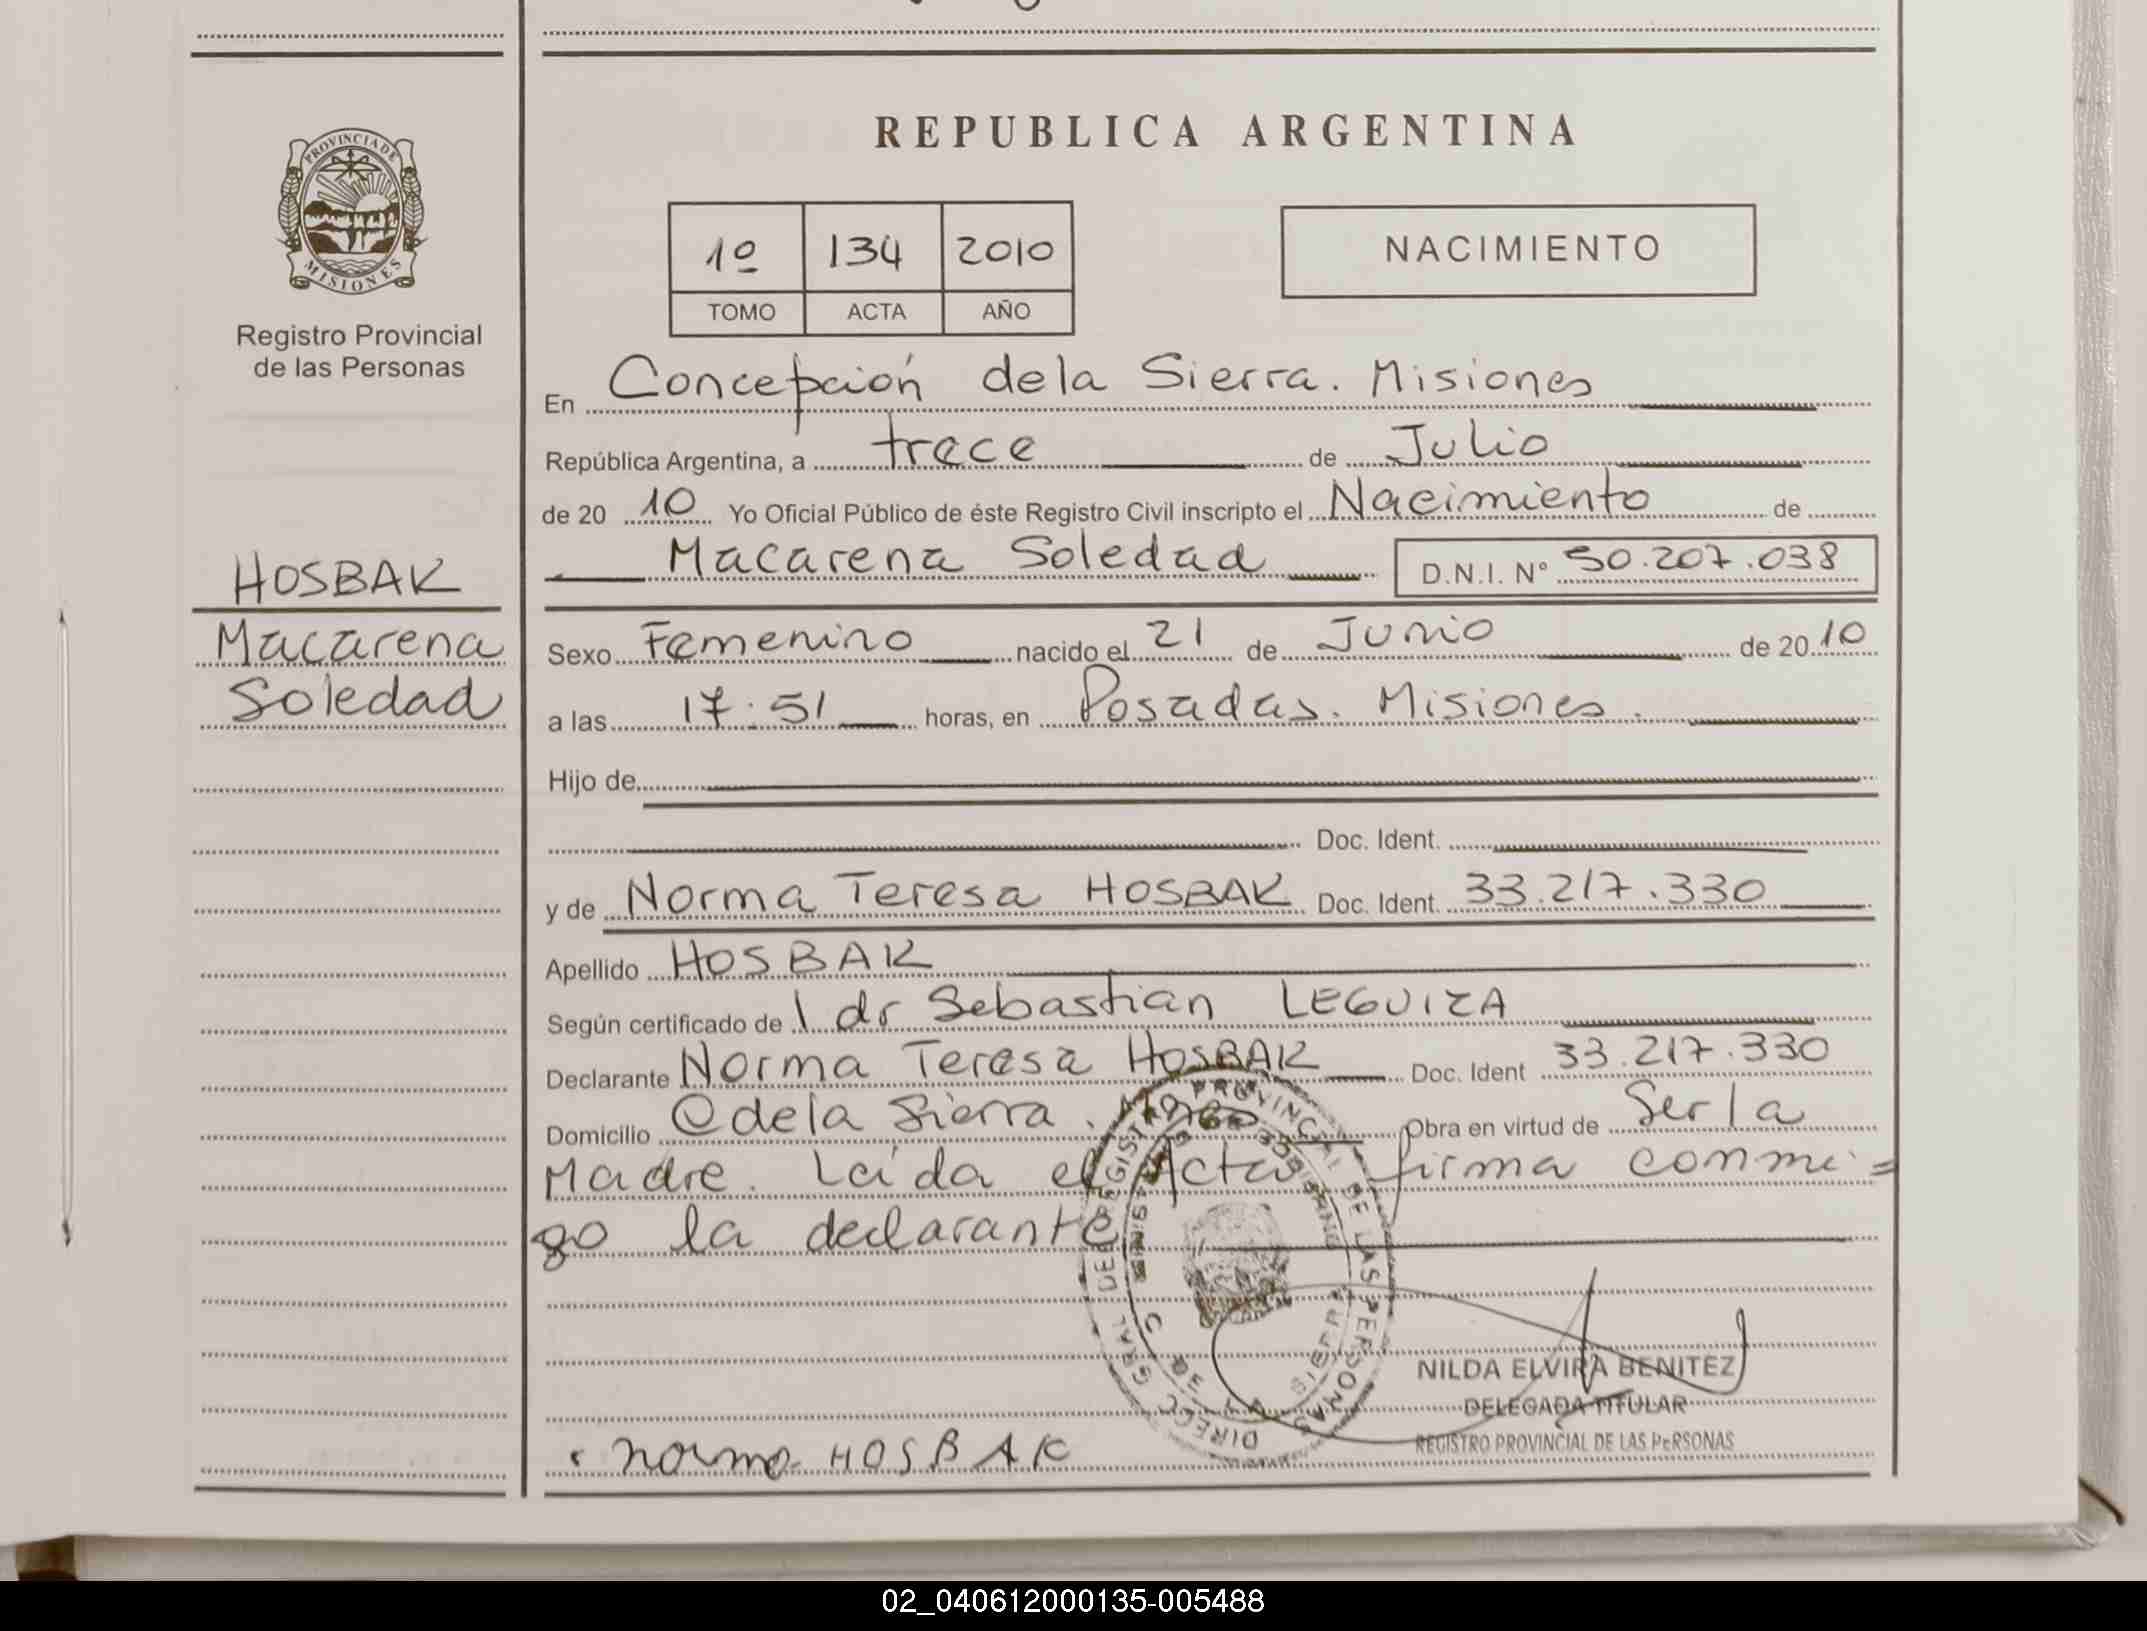 REPUBLICA ARGENTINA
PROVINCIA DE
MISIONES
Registro Provincial
de las Personas
1º 134 2010
TOMO ACTA AÑO
NACIMIENTO
En Concepción de la Sierra. Misiones
República Argentina, a trece de Julio
de 20 10 Yo Oficial Público de éste Registro Civil inscripto el Nacimiento de
Macarena Soledad D.N.I. Nº 50.207.038
HOSBAK
Macarena
Soledad
Sexo Femenino nacido el 21 de Junio de 20 10
a las 17:51 horas, en Posadas. Misiones.
Hijo de
Doc. Ident.
y de Norma Teresa HOSBAK Doc. Ident. 33.217.330
Apellido HOSBAK
Según certificado de dr Sebastian LEGUIZA
Declarante Norma Teresa HOSBAK Doc. Ident 33.217.330
Domicilio C de la Sierra. Obra en virtud de Ser la
Madre. Leída el Acta firma conmi=
go la declarante
DIRECC GRAL DEL REGISTRO PROVINCIAL DE LAS PERSONAS
C DE LA SIERRA
NILDA ELVIRA BENITEZ
DELEGADA TITULAR
REGISTRO PROVINCIAL DE LAS PeRSONAS
Norma HOSBAK
02_040612000135-005488